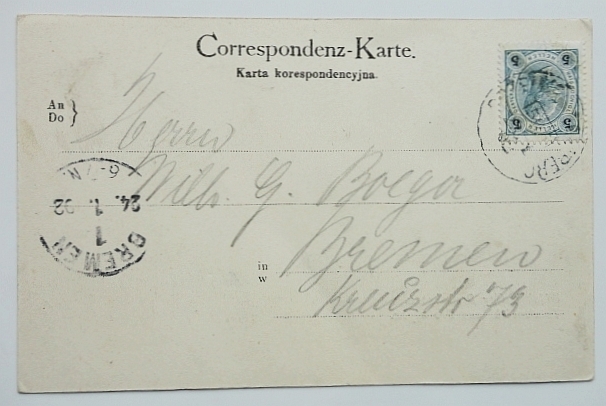 Correspondenz-Karte.
Karta korespondencyjna.
An
Do
Herrn
Wilh. G. Boeger
in
w
Bremen
Kreuzstr 73
BREMEN
1
24. 1. 02
6-7 N.
5 5
5 5